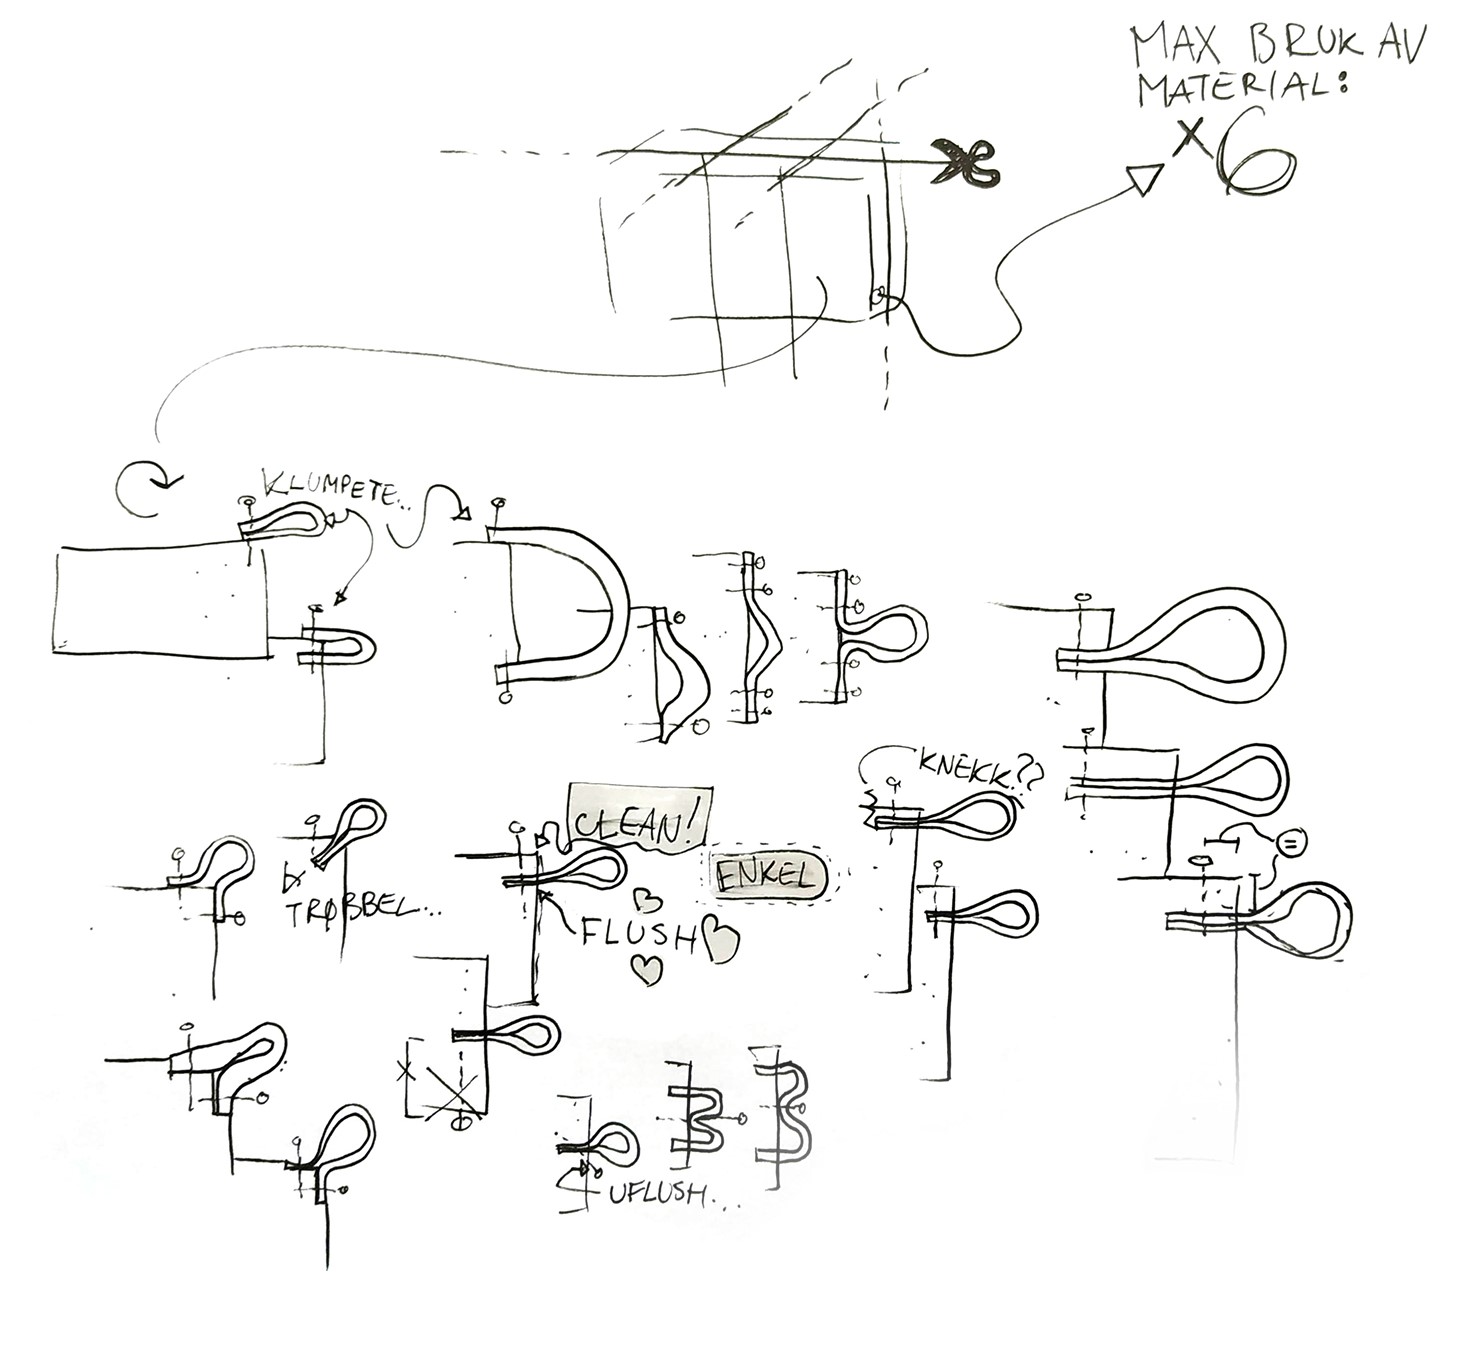 MAX BRUK AV
MATERIAL:
×6
KLUMPETE...
KNEKK??
CLEAN!
ENKEL
TRØBBEL...
FLUSH
UFLUSH...